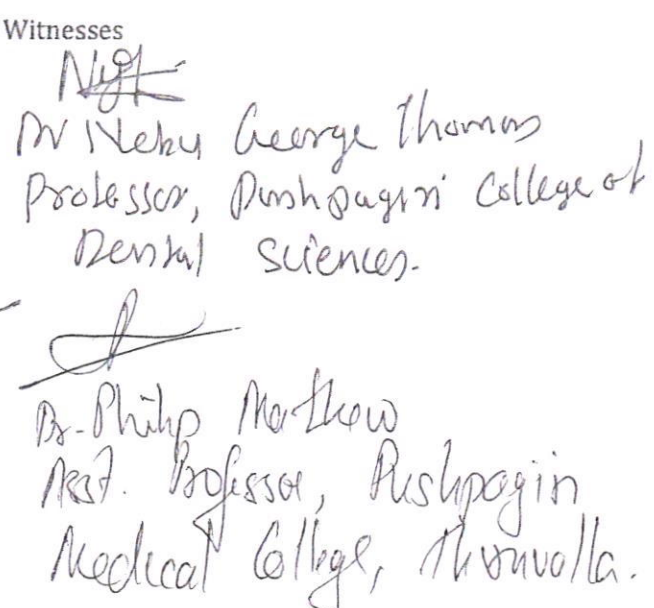 Witnesses
Dr Nebu George Thomas
Professor, Pushpagiri College of
Dental Sciences.
Dr. Philip Mathew
Asst. Professor, Pushpagiri
Medical College, Thiruvalla.